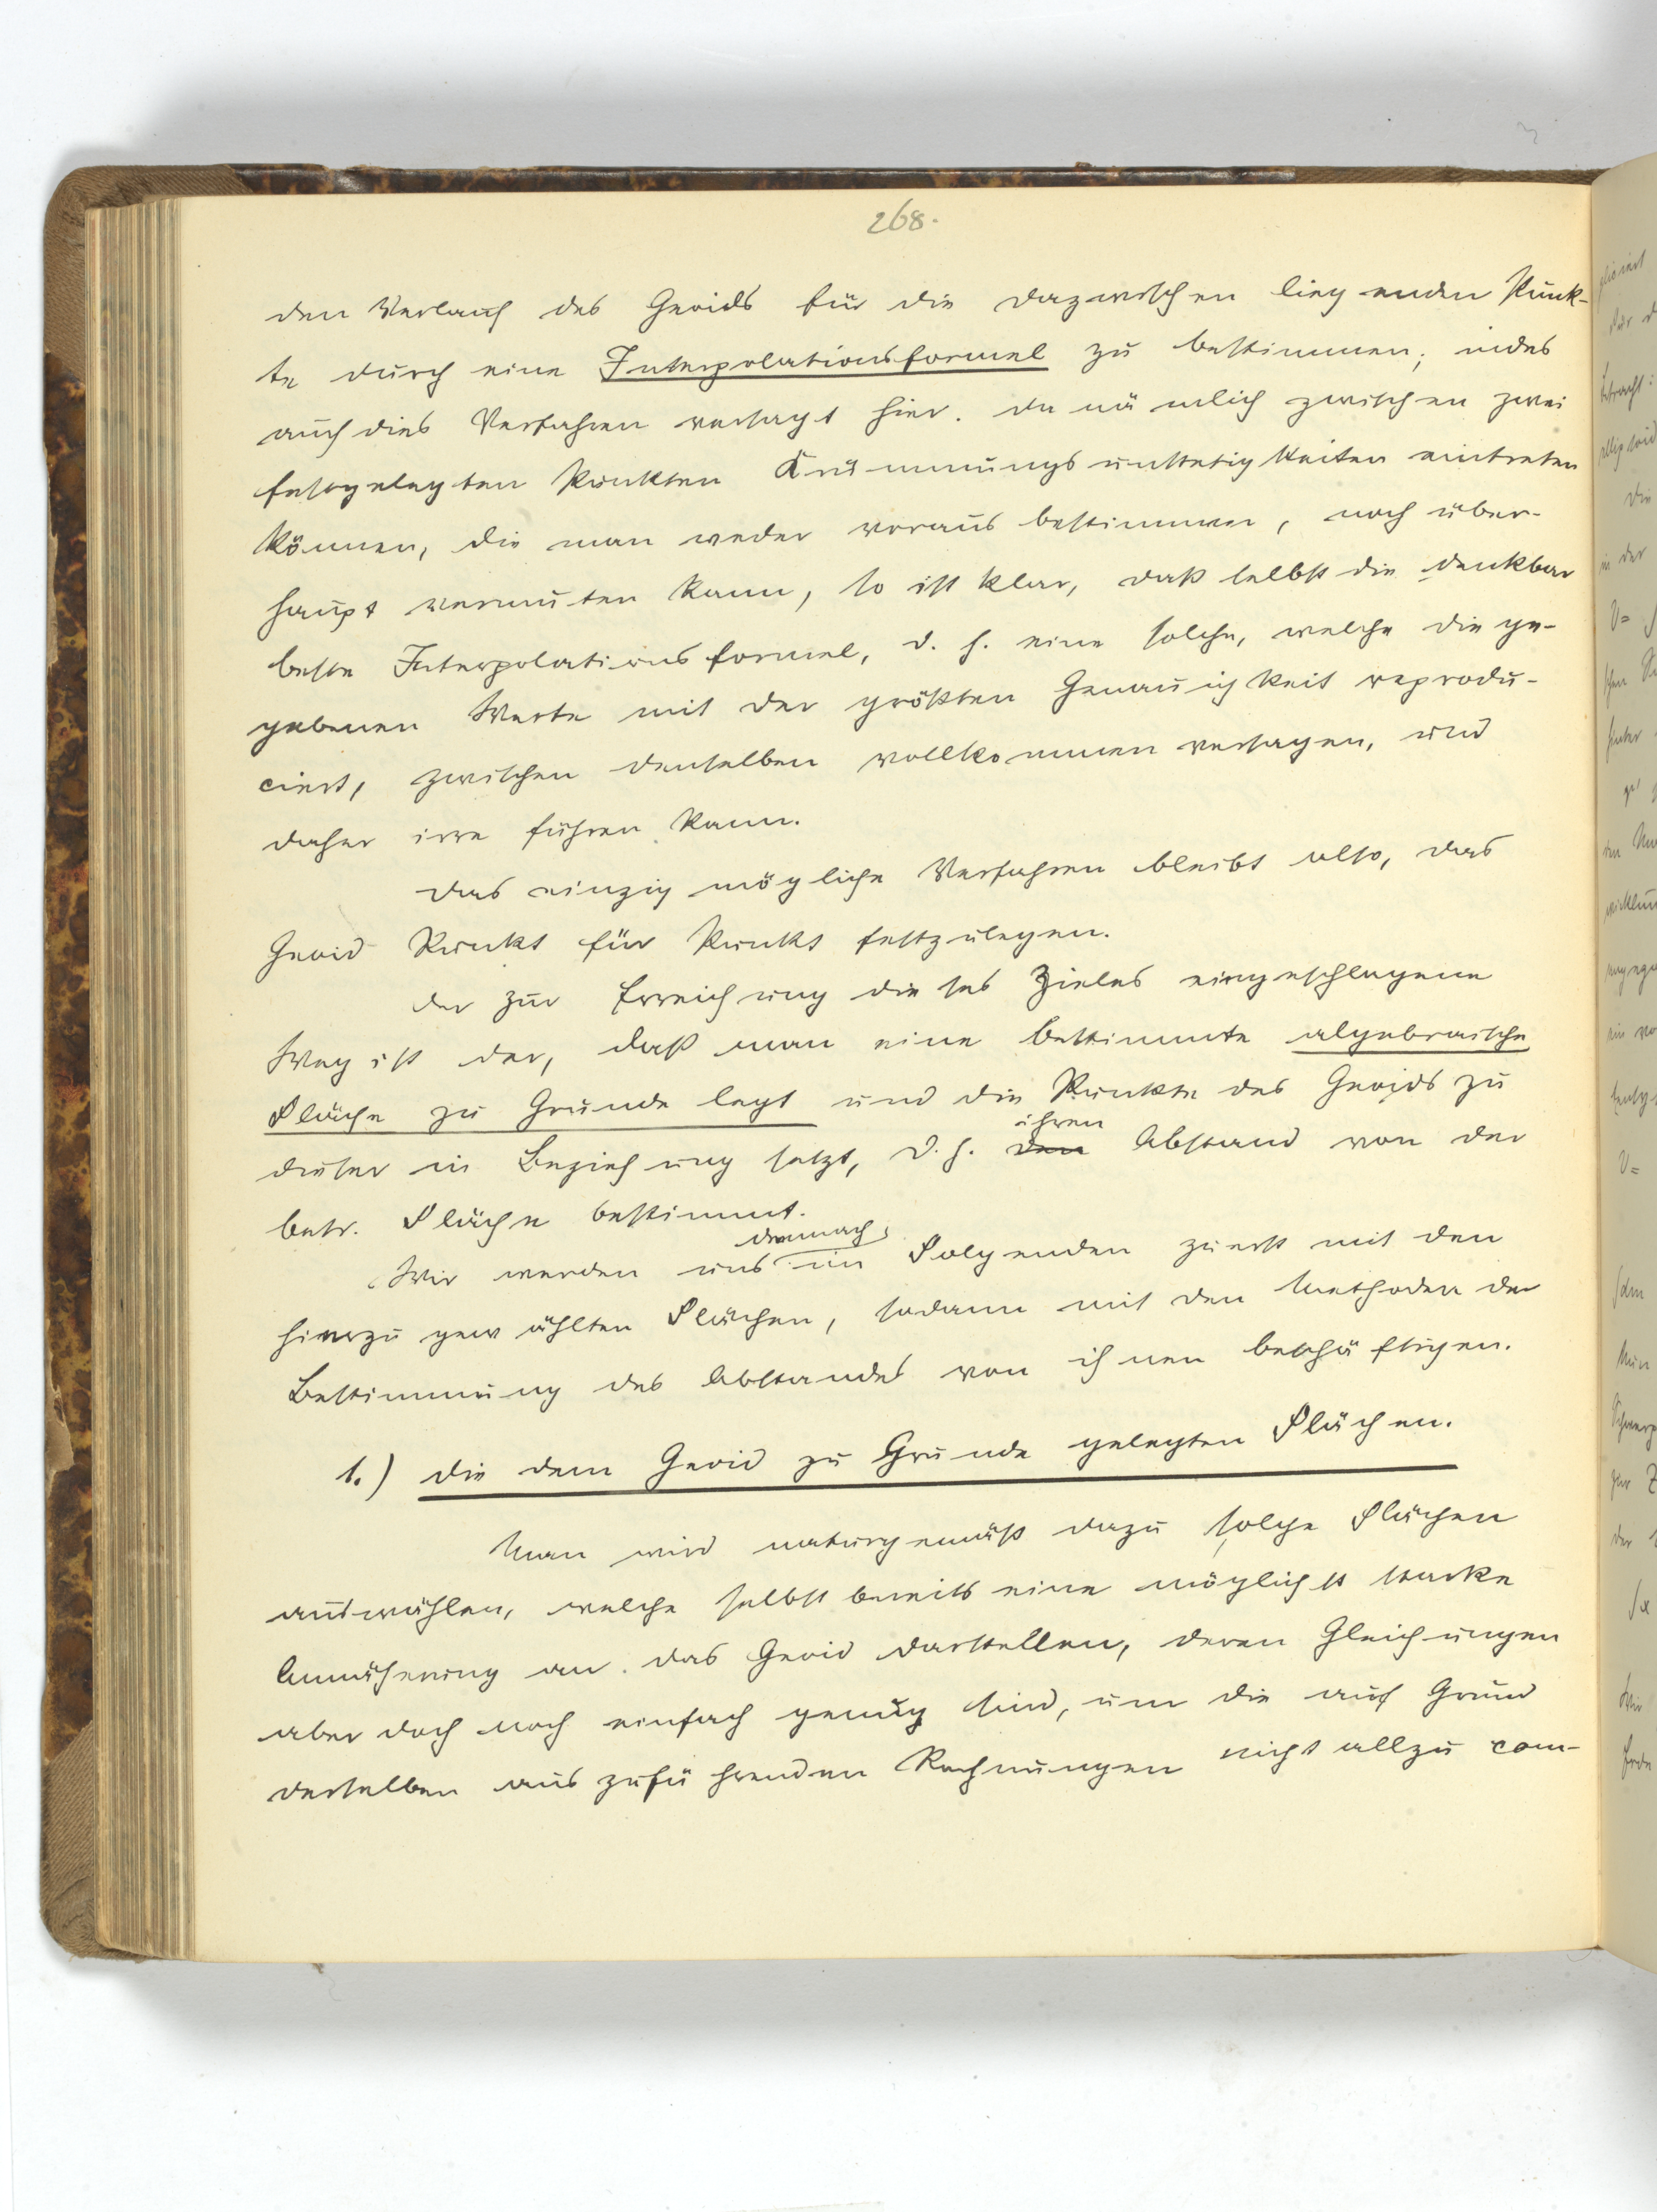 268.
den Verlauf des Geoids für die dazwischen liegenden Punk-
te durch eine Interpolationsformel zu bestimmen; indes
auch dies Verfahren versagt hier. da nämlich zwischen zwei
festgelegten Punkten Krümmungsunstetigkeiten eintreten
können, die man weder voraus bestimmen, noch über-
haupt vermuten kann, so ist klar, daß selbst die denkbar
beste Interpolationsformel, d. h. eine solche, welche die ge-
gebenen Werte mit der größten Genauigkeit reprodu-
ciert, zwischen denselben vollkommen versagen, und
daher irre führen kann.
Das einzig mögliche Verfahren bleibt also, das
Geoid Punkt für Punkt festzulegen.
Der zur Erreichung dieses Zieles eingeschlagene
Weg ist der, daß man eine bestimmte algebraische
Fläche zu Grunde legt und die Punkte des Geoids zu
ihren
dieser in Beziehung setzt, d. h. den Abstand von der
betr. Fläche bestimmt.
demnach
Wir werden uns im Folgenden zuerst mit den
hierzu gewählten Flächen, sodann mit den Methoden der
Bestimmung des Abstandes von ihnen beschäftigen.
1.) Die dem Geoid zu Grunde gelegten Flächen.
Man wird naturgemäß dazu solche Flächen
auswählen, welche selbst bereits eine möglichst starke
Annäherung an das Geoid darstellen, deren Gleichungen
aber doch noch einfach genug sind, um die auf Grund
derselben auszuführenden Rechnungen nicht allzu com-